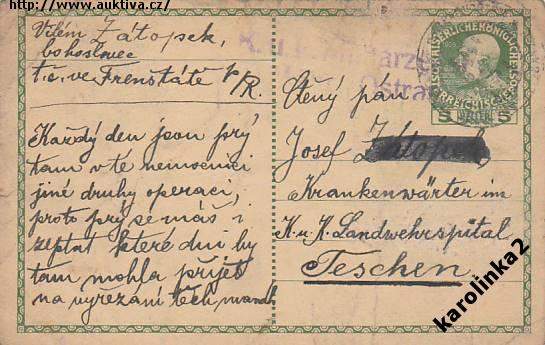 http://www.auktiva.cz/
Vilém Zátopek,
bohoslovec
t.č. ve Frenštátě p/R.
Každý den jsou prý
tam v té nemocnici
jiné druhy operací,
proto prý se máš i
zeptat které dni by
tam mohla přijet
na vyřezání těch mandlí
K. u. k.
Ostrau
KAISERLICHEKÖNIGLICHE
ÖSTERREICHISCHE POST
5 5
Ctěný pán
Josef Zátopek
Krankenwärter im
K. u. K. Landwehrspital
Teschen.
karolinka2